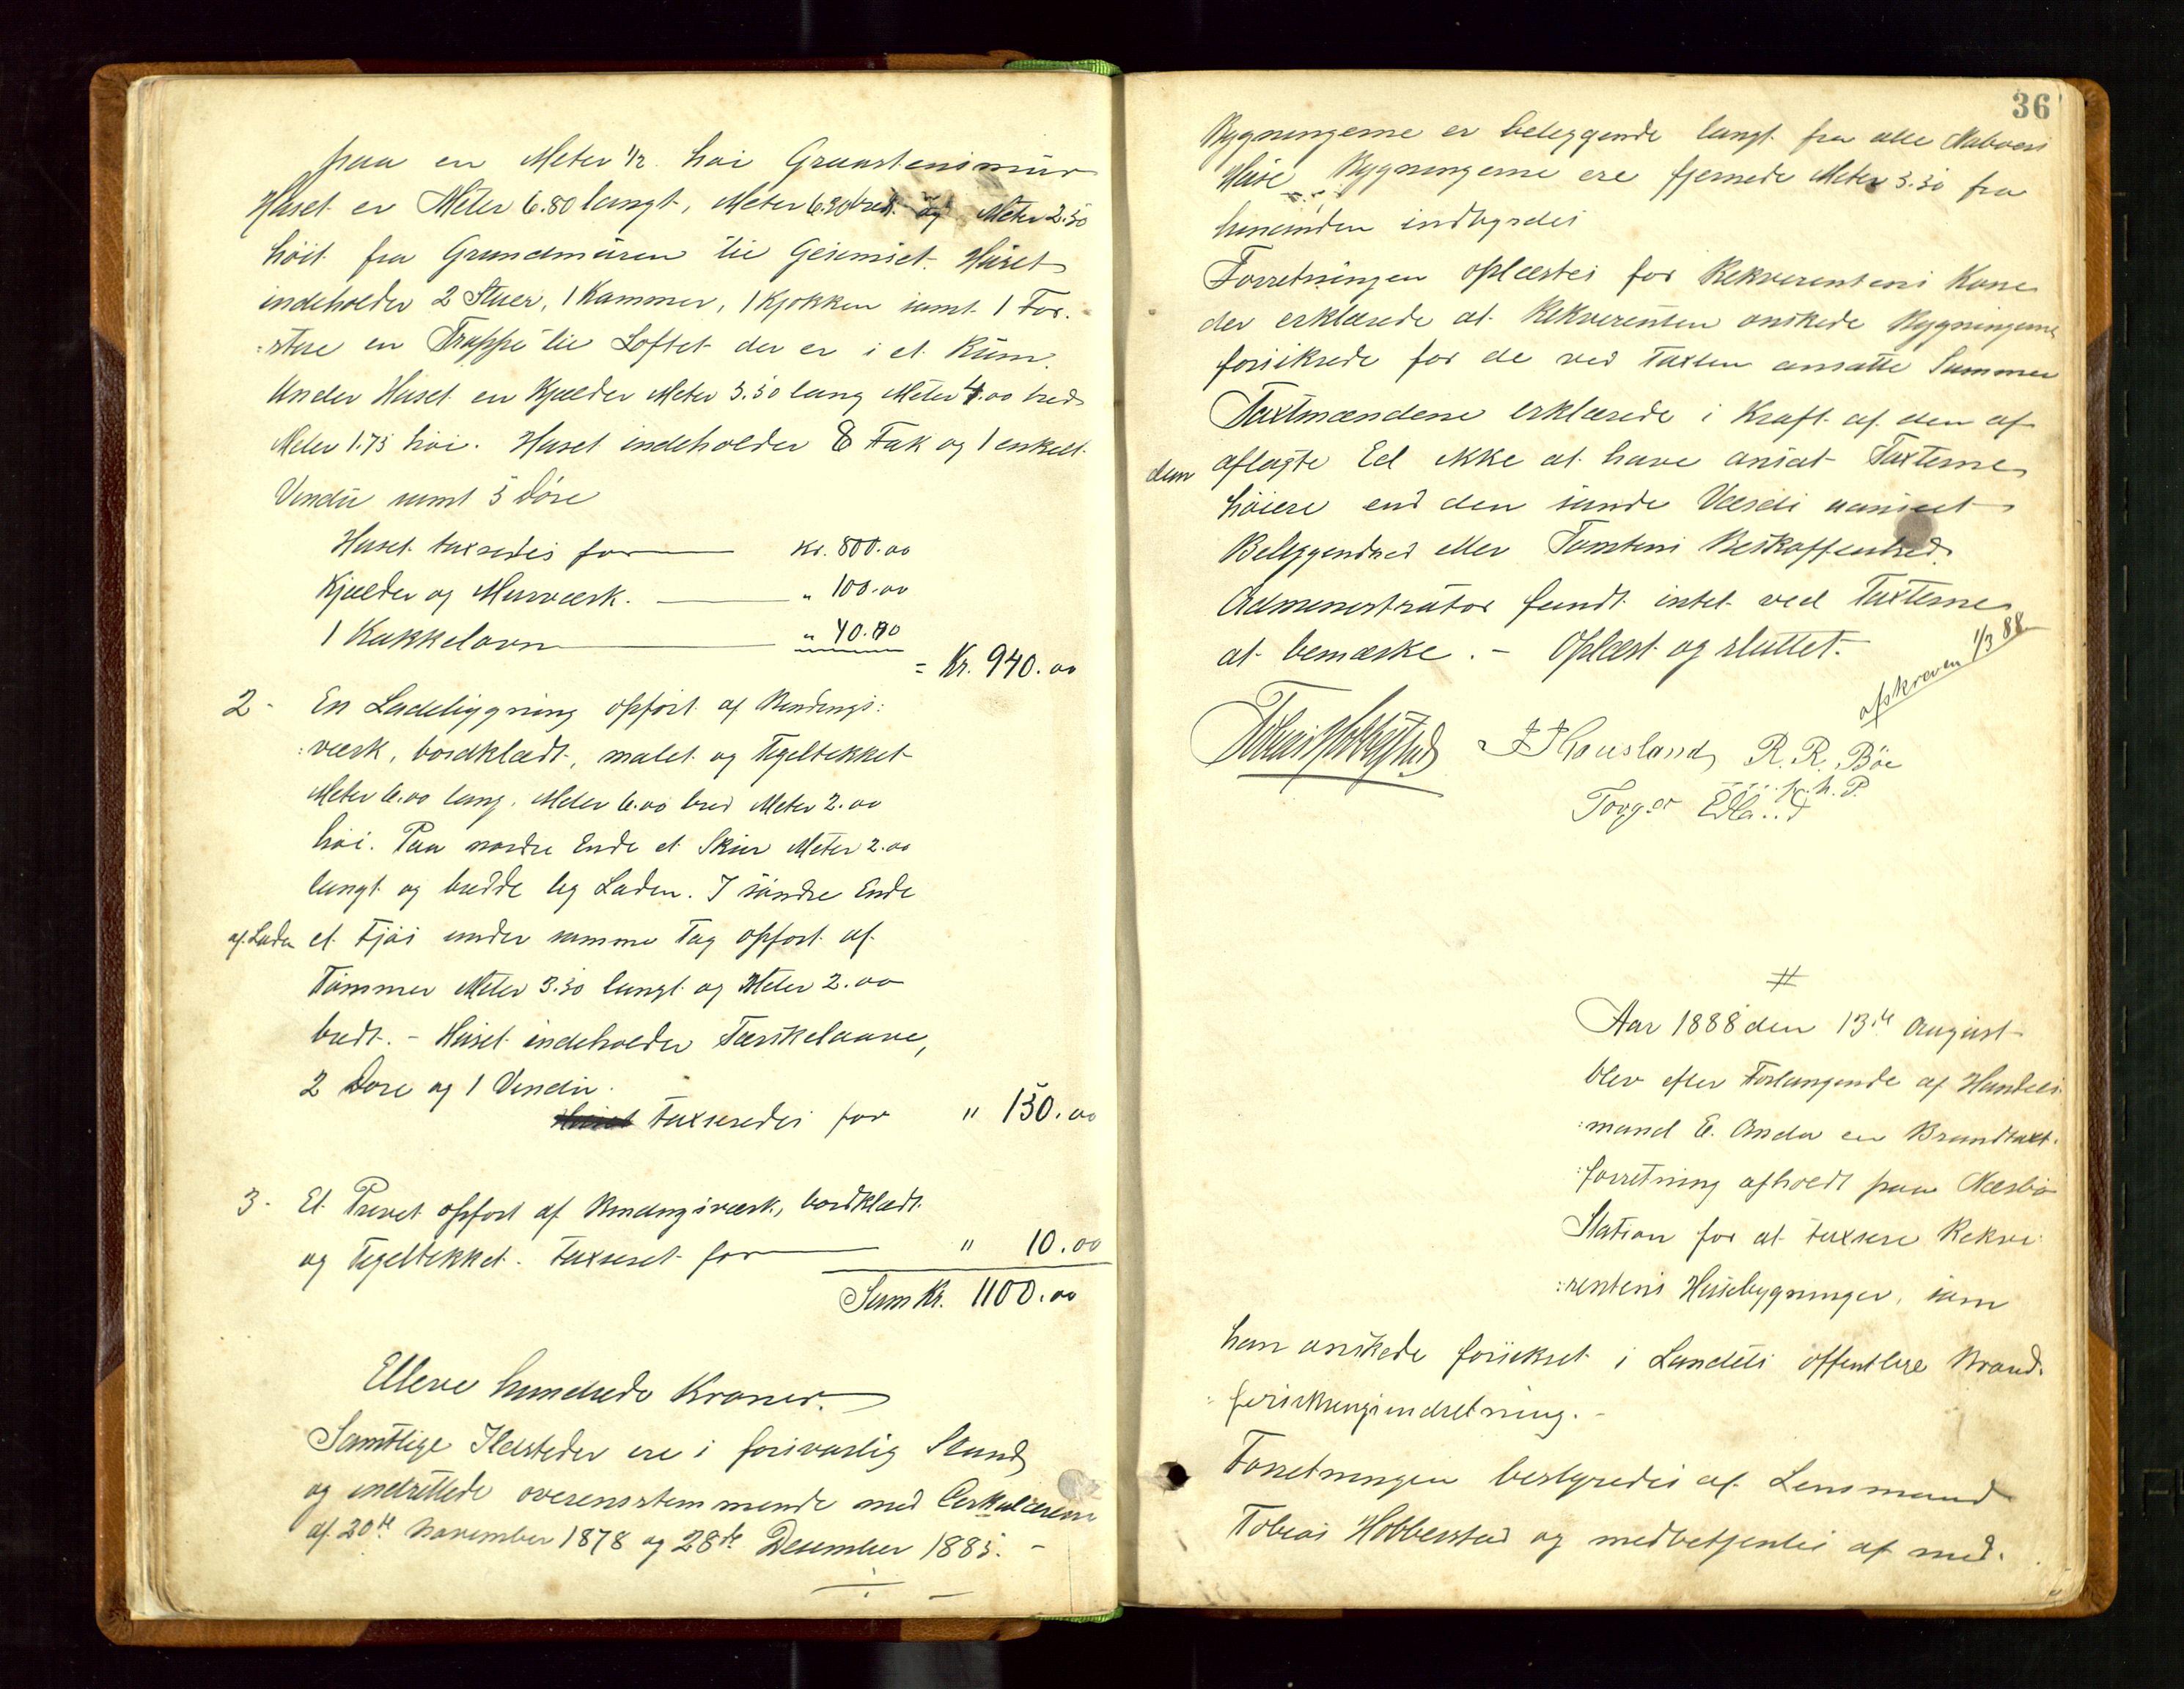 paa en Meter 1/2 høi Graastensmur
Huset er Meter 6.80 langt, Meter 6.30 bredt og Meter 2.50
høit fra Grundmuren til Gesimset. Huset
indeholder 2 Stuer, 1 Kammer, 1 Kjøkken samt 1 For-
:stue en Trappe til Loftet der er i et Rum.
Under Huset en Kjælder Meter 3.50 lang Meter 4.00 bred
Meter 1.75 høi. Huset indeholder 8 Fak og 1 enkelt
Vindu samt 5 Døre
Huset taxseredes for kr. 800.00
Kjælder og Murværk. " 100.00
1 Kakkelovn " 40.00
= Kr. 940.00
2- En Ladebygning opført af Bindings:
:værk, bordklædt, malet og Tegeltekket
Meter 6.00 lang, Meter 6.00 bred Meter 2.00
høi. Paa nordre Ende et Skur Meter 2.00
langt og bredde lig Laden. I søndre Ende
af Laden et Fjøs under samme Tag opført af
Tømmer Meter 3.50 langt og Meter 2.00
bredt. - Huset indeholder Tærskelaave,
2 Døre og 1 Vindu.
Huset taxseredes for " 150.00
3- Et Privet opført af Bindingsværk, bordklædt
og Tegeltekket. taxseret for " 10.00
Sum Kr. 1100.00
Elleve hundrede Kroner.
Samtlige Ildsteder ere i forsvarlig Stand
og indrettede overensstemmende med Cirkulærerne
af 20de November 1878 og 28de Desember 1885. -
36
Bygningerne er beleggende langt fra alle Naboers
Huse. Bygningerne ere fjernede Meter 3.50 fra
hinanden indbyrdes
Forretningen oplæstes for Rekverentens Kone
der erklærede at Rekverenten ønskede Bygningerne
forsikrede for de ved Taxten ansatte Summer
Taxtmændene erklærede i Kraft af den af
dem aflagte Ed ikke at have ansat Taxterne
høiere end den sande Værdi uanseet
Beleggenhed eller Tomtens Beskaffenhed.
Administrator fandt intet ved Taxterne
at bemærke. - Oplæst og sluttet.
afskreven 1/3 88
Tobias Hobberstad J J Hausland R. R. Bøe
m. p. P.
Torger Edland
#
Aar 1888 den 13de August
blev efter Forlangende af Handels-
:mand E. Anda en Brandtaxt-
:forretning afholdt paa Nærbø
Station for at taxsere Rekve-
:rentens Husebygninger, som
han ønskede forsikret i Landets offentlige Brand-
:forsikringsindretning. -
Forretningen bestyredes af Lensmand
Tobias Hobberstad og medbetjentes af med-